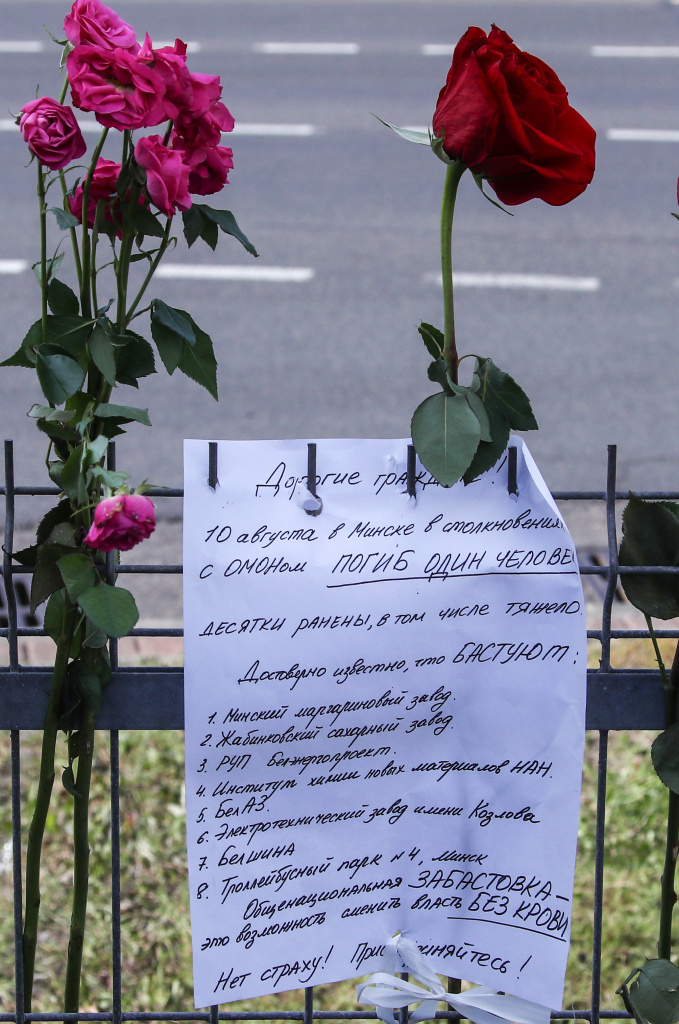 Дорогие граждане!
10 августа в Минске в столкновениях
с ОМОНом ПОГИБ ОДИН ЧЕЛОВЕК
ДЕСЯТКИ РАНЕНЫ, в том числе тяжело.
Достоверно известно, что БАСТУЮТ:
1. Минский маргариновый завод.
2. Жабинковский сахарный завод.
3. РУП Белэнергопроект.
4. Институт химии новых материалов НАН.
5. БелАЗ.
6. Электротехнический завод имени Козлова
7. БЕЛШИНА
8. Троллейбусный парк №4, Минск
Общенациональная ЗАБАСТОВКА –
это возможность сменить власть БЕЗ КРОВИ
Нет страху! Присоединяйтесь!